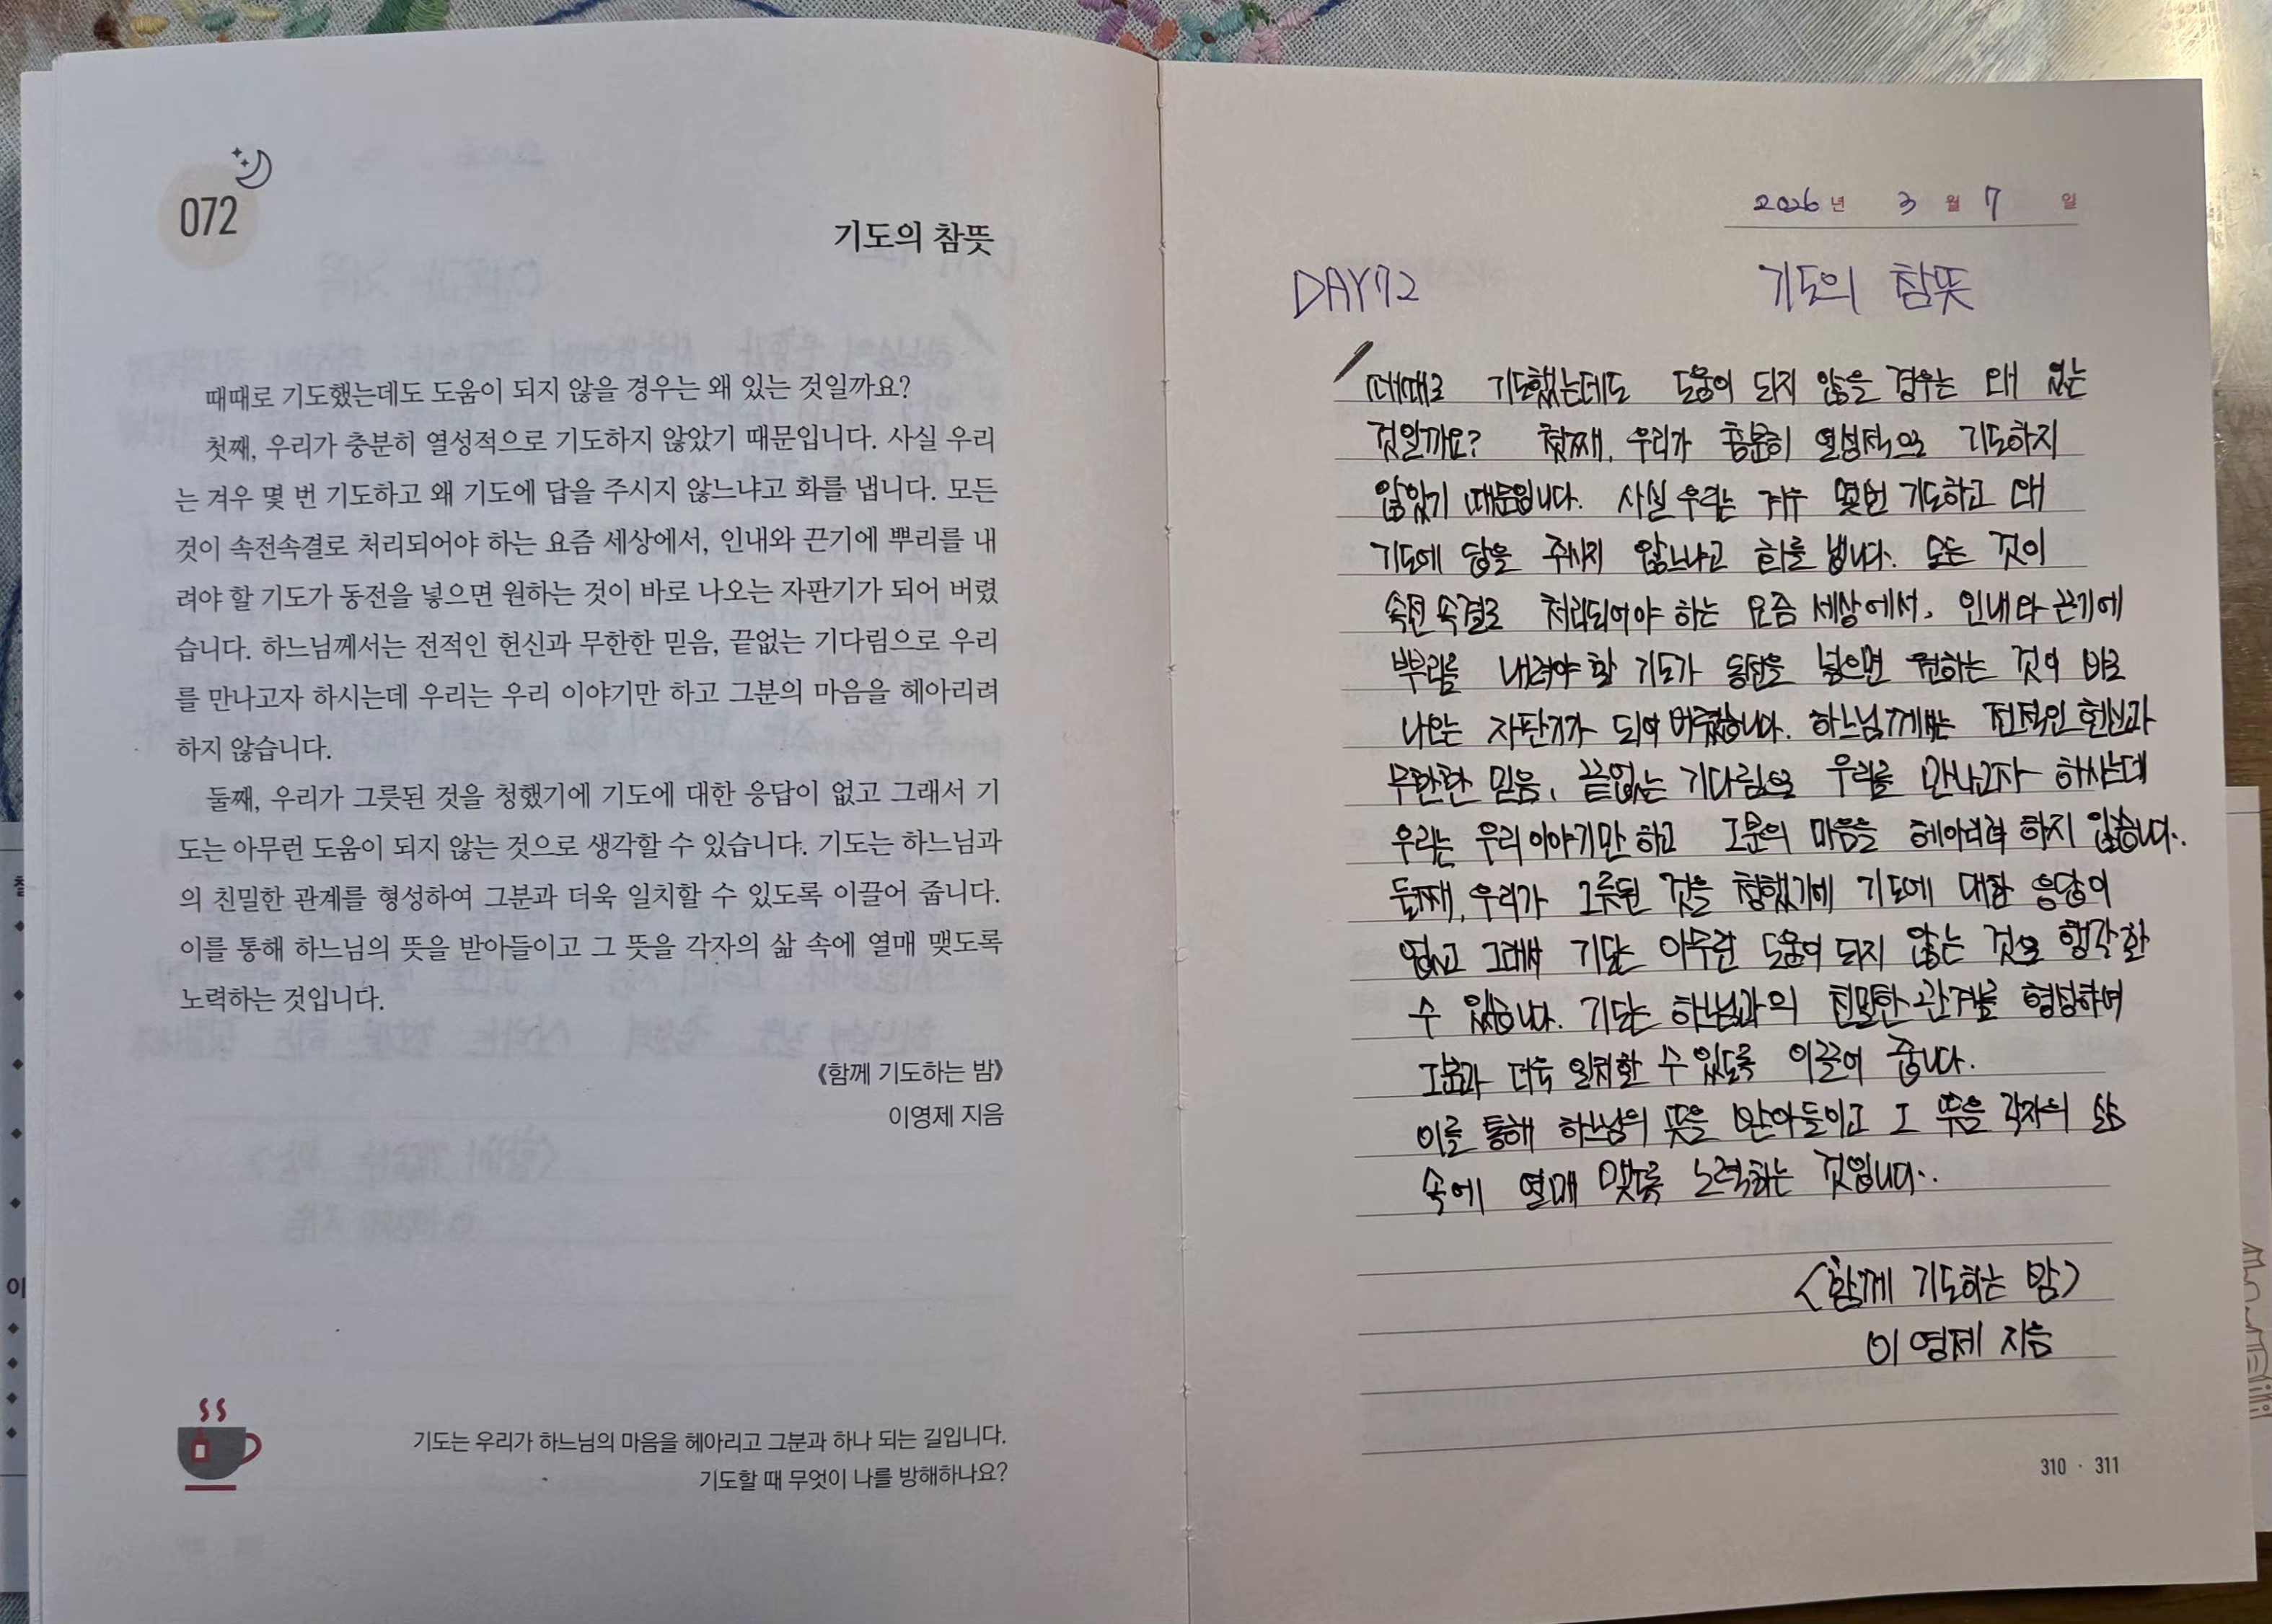 072
기도의 참뜻
때때로 기도했는데도 도움이 되지 않을 경우는 왜 있는 것일까요?
첫째, 우리가 충분히 열성적으로 기도하지 않았기 때문입니다. 사실 우리
는 겨우 몇 번 기도하고 왜 기도에 답을 주시지 않느냐고 화를 냅니다. 모든
것이 속전속결로 처리되어야 하는 요즘 세상에서, 인내와 끈기에 뿌리를 내
려야 할 기도가 동전을 넣으면 원하는 것이 바로 나오는 자판기가 되어 버렸
습니다. 하느님께서는 전적인 헌신과 무한한 믿음, 끝없는 기다림으로 우리
를 만나고자 하시는데 우리는 우리 이야기만 하고 그분의 마음을 헤아리려
하지 않습니다.
둘째, 우리가 그릇된 것을 청했기에 기도에 대한 응답이 없고 그래서 기
도는 아무런 도움이 되지 않는 것으로 생각할 수 있습니다. 기도는 하느님과
의 친밀한 관계를 형성하여 그분과 더욱 일치할 수 있도록 이끌어 줍니다.
이를 통해 하느님의 뜻을 받아들이고 그 뜻을 각자의 삶 속에 열매 맺도록
노력하는 것입니다.
《함께 기도하는 밤》
이영제 지음
기도는 우리가 하느님의 마음을 헤아리고 그분과 하나 되는 길입니다.
기도할 때 무엇이 나를 방해하나요?
2026년 3월 7일
DAY72 기도의 참뜻
때때로 기도했는데도 도움이 되지 않을 경우는 왜 있는
것일까요? 첫째, 우리가 충분히 열성적으로 기도하지
않았기 때문입니다. 사실 우리는 겨우 몇번 기도하고 왜
기도에 답을 주시지 않느냐고 화를 냅니다. 모든 것이
속전속결로 처리되어야 하는 요즘 세상에서, 인내와 끈기에
뿌리를 내려야 할 기도가 동전을 넣으면 원하는 것이 바로
나오는 자판기가 되어 버렸습니다. 하느님께서는 전적인 헌신과
무한한 믿음, 끝없는 기다림으로 우리를 만나고자 하시는데
우리는 우리 이야기만 하고 그분의 마음을 헤아리려 하지 않습니다.
둘째, 우리가 그릇된 것을 청했기에 기도에 대한 응답이
없고 그래서 기도는 아무런 도움이 되지 않는 것으로 생각할
수 있습니다. 기도는 하느님과의 친밀한 관계를 형성하여
그분과 더욱 일치할 수 있도록 이끌어 줍니다.
이를 통해 하느님의 뜻을 받아들이고 그 뜻을 각자의 삶
속에 열매 맺도록 노력하는 것입니다.
<함께 기도하는 밤>
이영제 지음
310 · 311